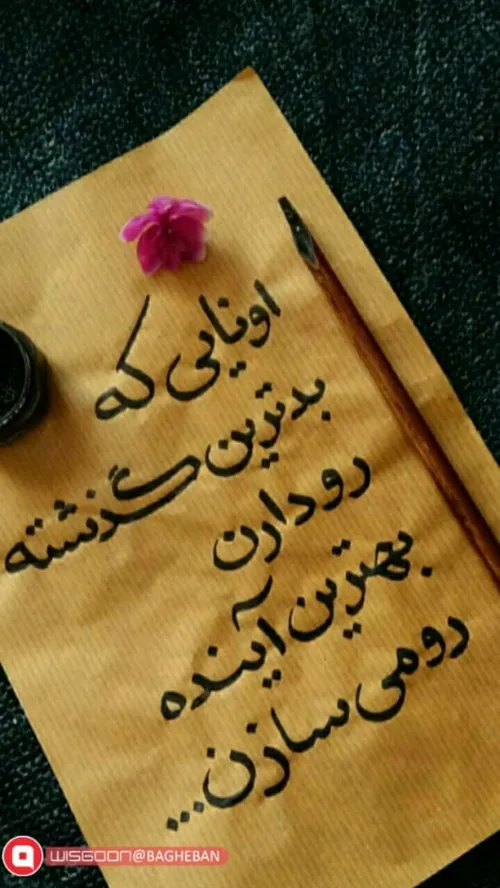 اونایی که
بدترین گذشته
رو دارن
بهترین آینده
رو می سازن...
WISGOON@BAGHEBAN